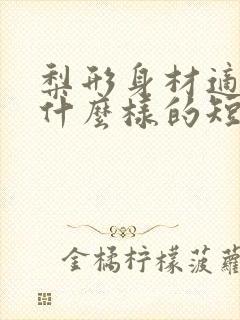 梨形身材適
什麼樣的短
金橘柠檬菠蘿